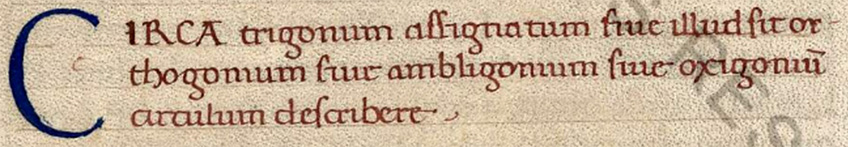 CIRCA trigonum assignatum siue illud sit or
thogonium siue ambligonium siue oxigoniū
circulum describere